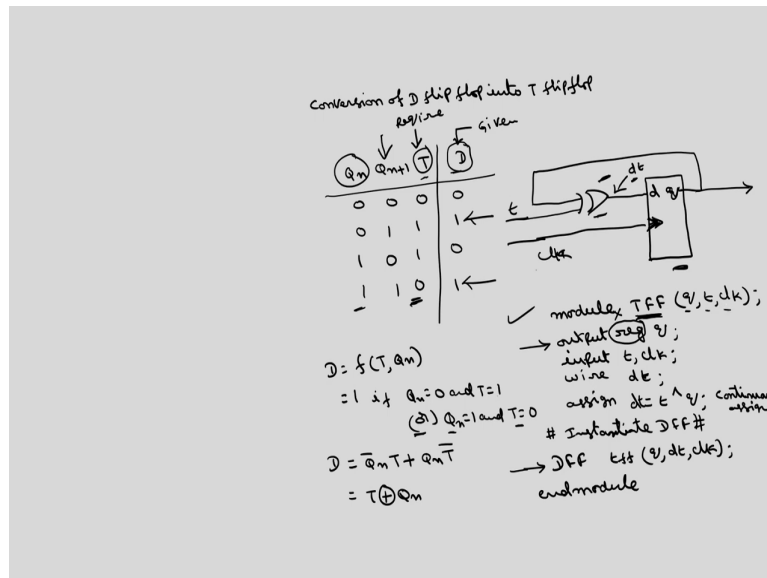 conversion of D flip flop into T flipflop
require
Given
Qn Qn+1 T D
0 0 0 0
0 1 1 1
1 0 1 0
1 1 0 1
dt
d q
t
clk
D = f(T, Qn)
= 1 if Qn=0 and T=1
(or) Qn=1 and T=0
D = Q̅n T + Qn T̅
= T ⊕ Qn
module TFF (q, t, clk);
output reg q;
input t, clk;
wire dt;
assign dt = t ^ q;
# Instantiate DFF #
DFF tff (q, dt, clk);
endmodule